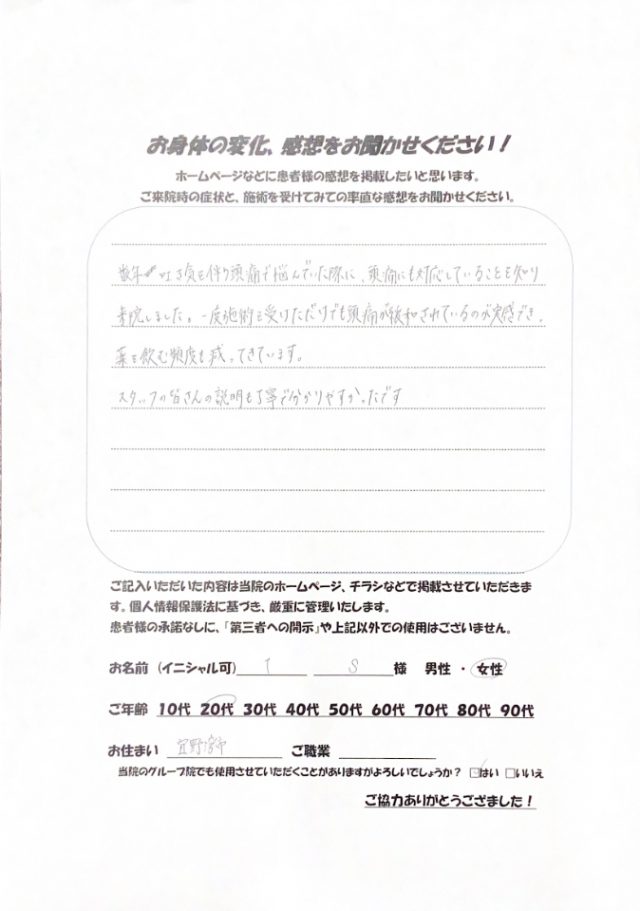 お身体の変化、感想をお聞かせください！
ホームページなどに患者様の感想を掲載したいと思います。
ご来院時の症状と、施術を受けてみての率直な感想をお聞かせください。
数年吐き気を伴う頭痛で悩んでいた際に、頭痛にも対応していることを知り
来院しました。一度施術を受けただけでも頭痛が緩和されているのが実感でき、
薬を飲む頻度も減ってきています。
スタッフの皆さんの説明も丁寧で分かりやすかったです
ご記入いただいた内容は当院のホームページ、チラシなどで掲載させていただきま
す。個人情報保護法に基づき、厳重に管理いたします。
患者様の承諾なしに、「第三者への開示」や上記以外での使用はございません。
お名前（イニシャル可） T S 様 男性 ・ 女性
ご年齢 10代 20代 30代 40代 50代 60代 70代 80代 90代
お住まい 宜野湾市 ご職業
当院のグループ院でも使用させていただくことがありますがよろしいでしょうか？ ☑はい □いいえ
ご協力ありがとうござました！